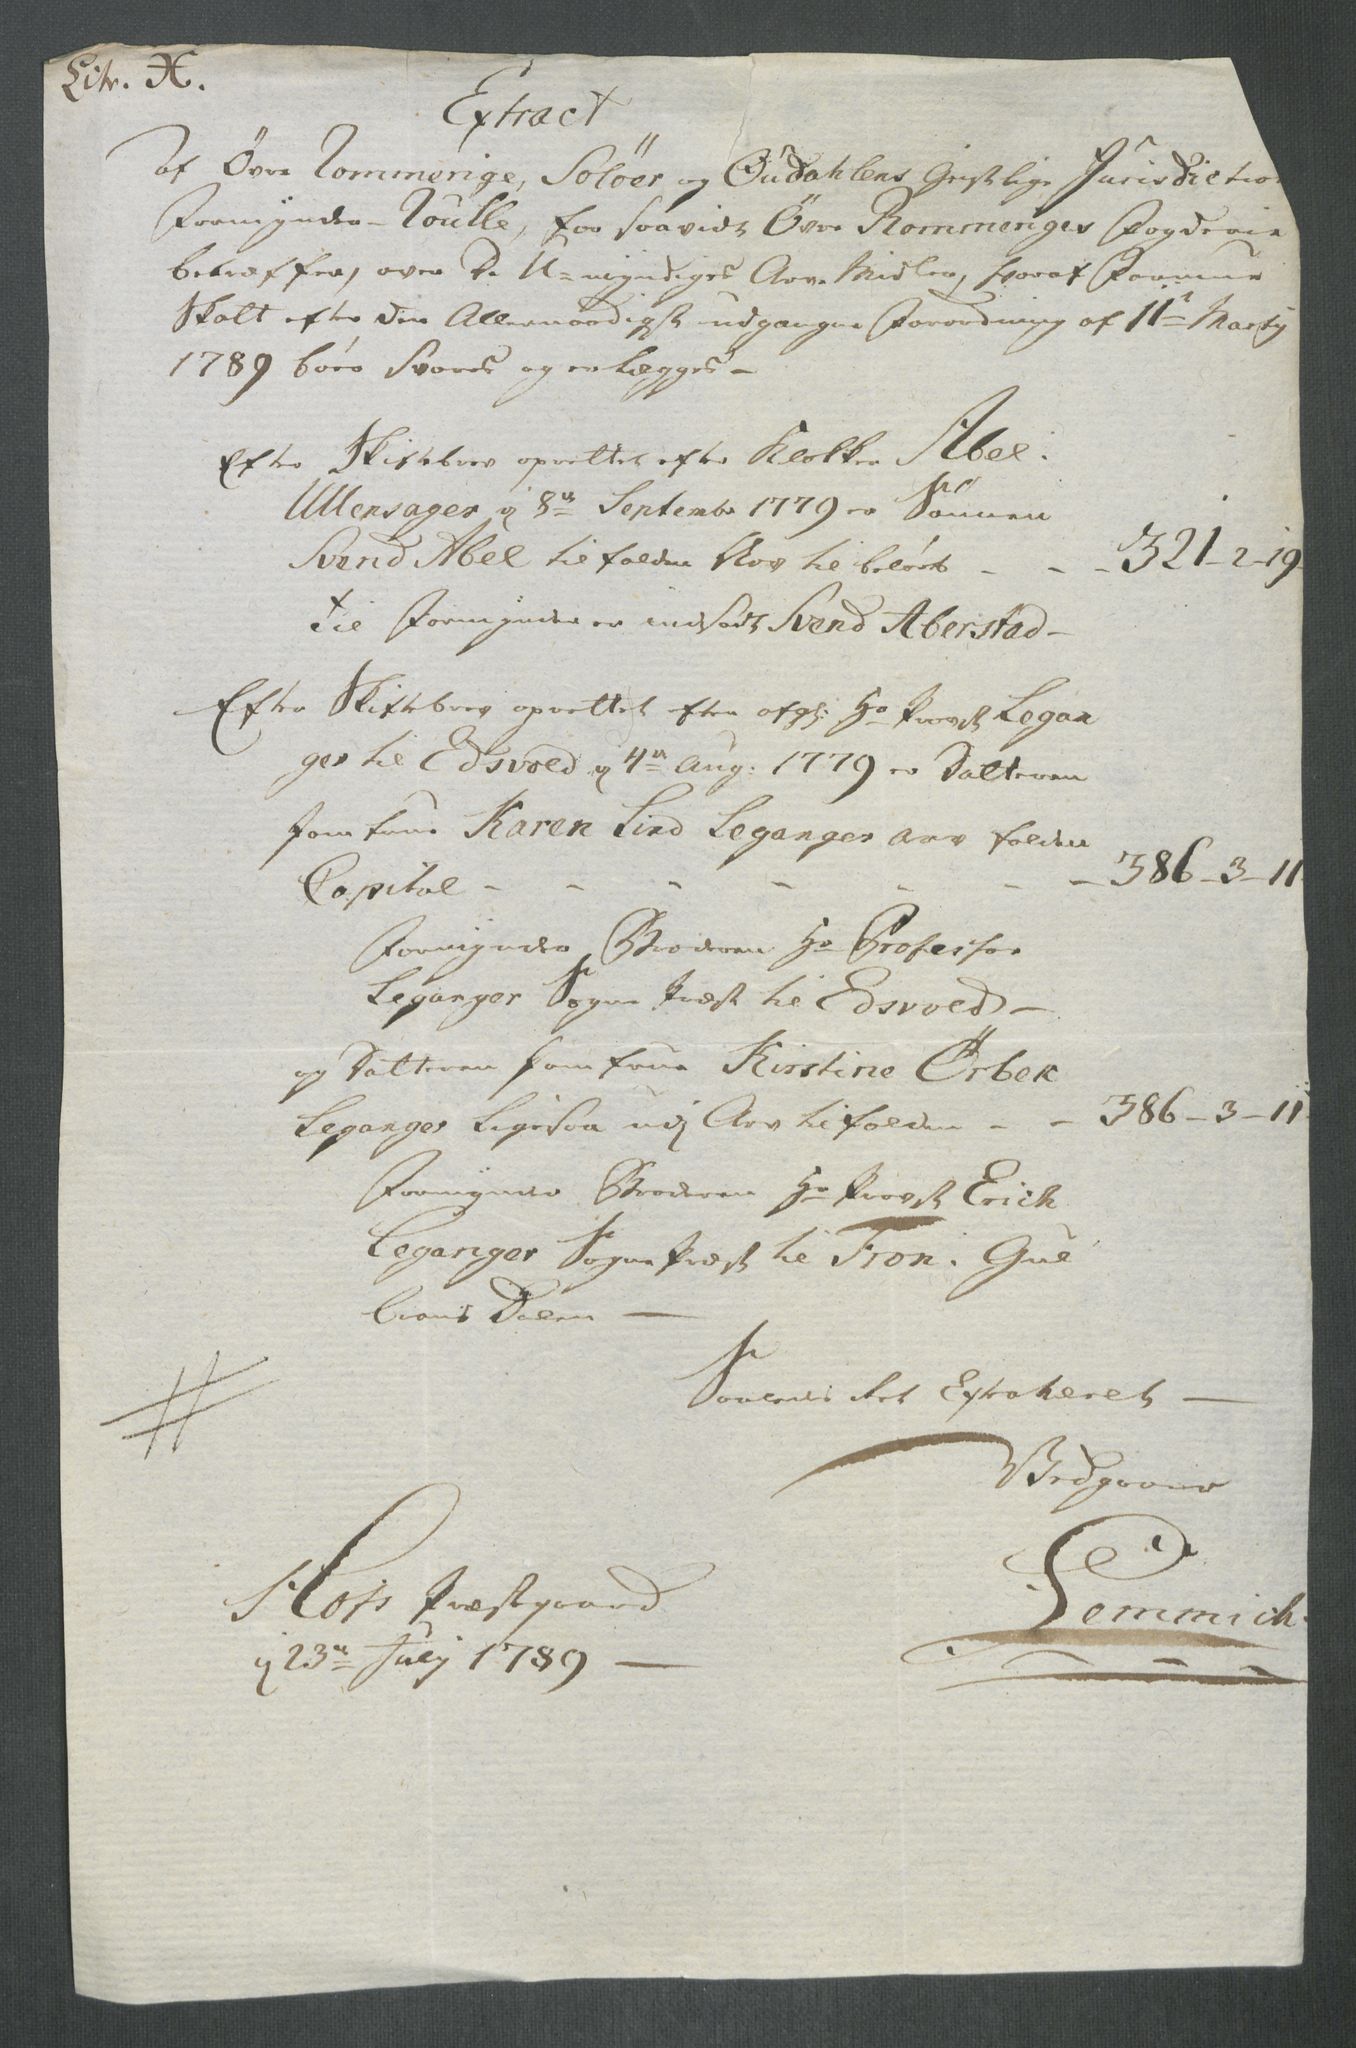 Litr. H.
Extract
af Övre Rommerige, Solöer og Oudahlens Geistlige Jurisdiction
Formynder-Roulle, for saavidt Övre Rommeriges Fogderie
betræffer, over de U-myndiges Arve Midler, hvoraf Formue
Skatt efter den Allernaadigst udgangne Forordning af 11te Martij
1789 bör svares og erlægges -
Efter Skiftebrev oprettet efter Klokker Abel i
Ullensager ij 8de September 1779 er Sönnen
Svend Abel tilfalden Arv til belöb - - - 321-2-19
til Formynder er indsadt Svend Aberstad -
Efter Skiftebrev oprettet efter afg: Hr Provst Legan
ger til Edsvold ij 4de Aug: 1779 er Datteren
Jomfrue Karen Lind Leganger arv falden
Capital - - - - - - - 386-3-11
Formynder Broderen Hr Professor
Leganger Sogne Præst til Edsvold -
og Datteren Jomfrue Kirstine Örbek
Leganger Ligesaa udj Arv tilfalden - - 386-3-11
Formynder Broderen Hr Provst Erich
Leganger Sogne Præst til Fron i Gul
brans Dalen -
Saaledes Ret Extraheret -
Lemmich
Hofs Præstgaard
ij 23de Julij 1789 -